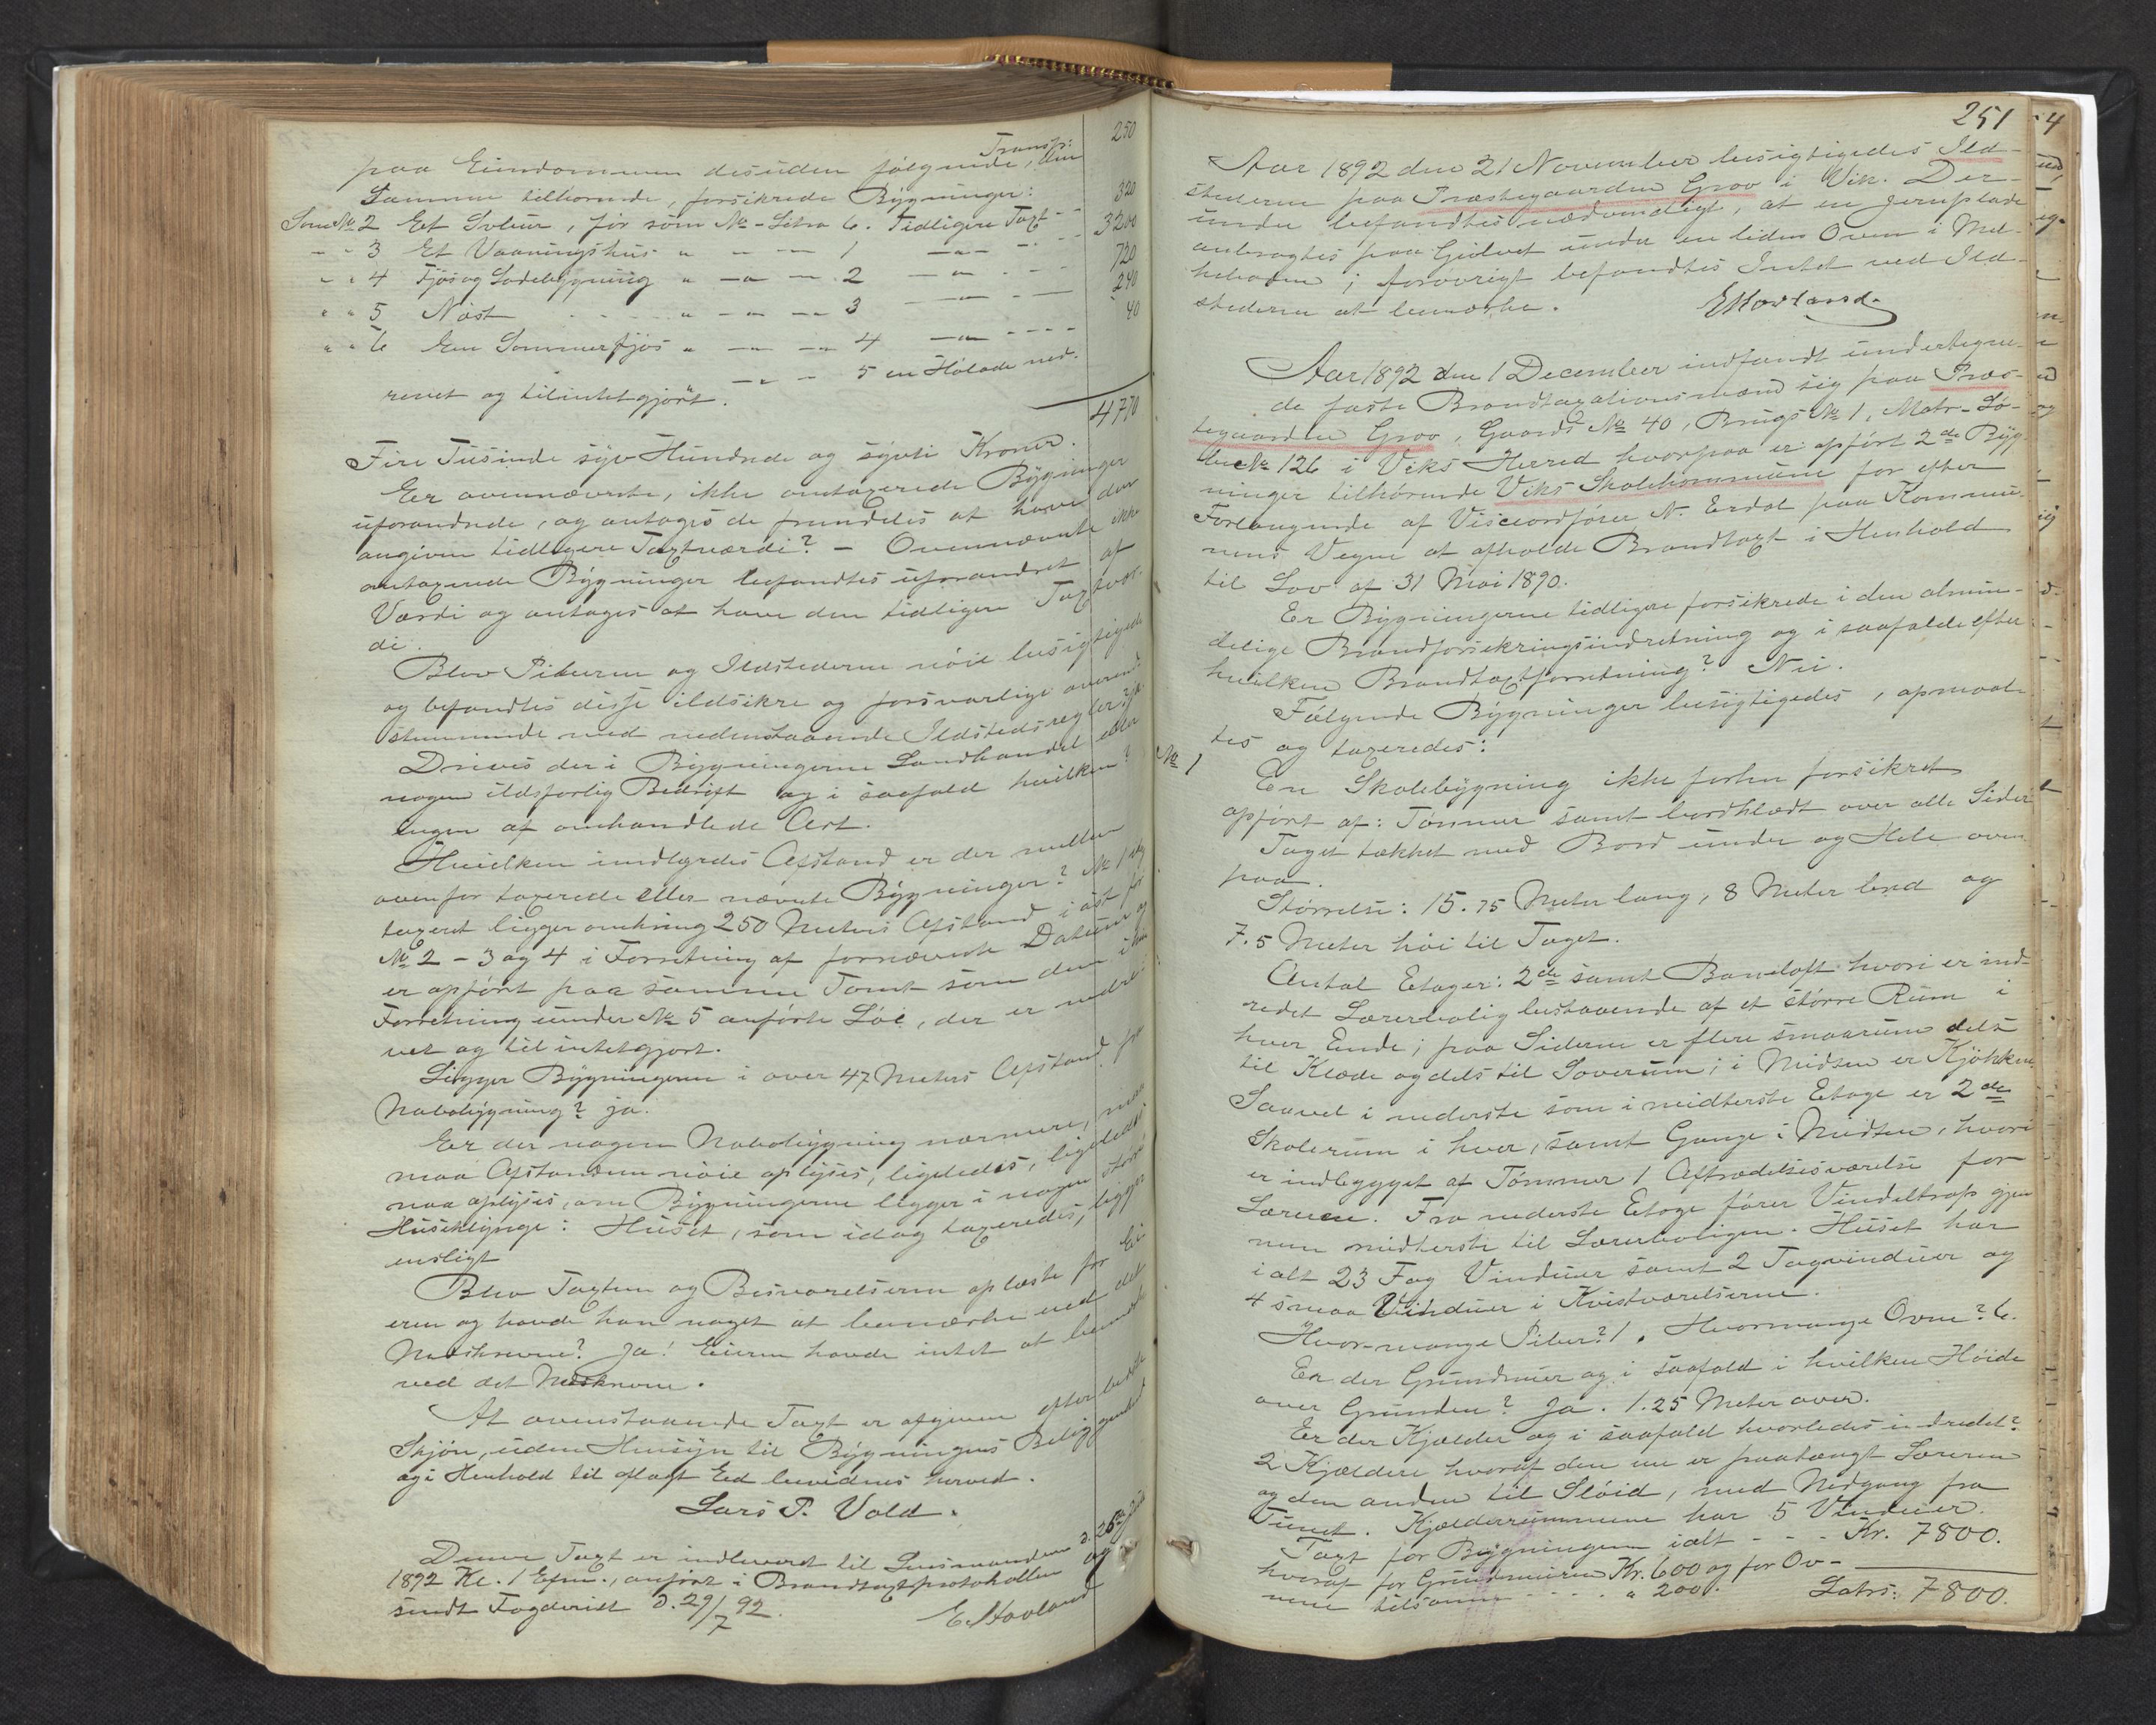 Transp: 250
paa Eiendommen desuden følgende, den
Samme tilhørende, forsikrede Bygninger:
Som № 2 Et Svbur, før som № - Litra 6. Tidligere Taxt - - 320
" " 3 Et Vaaningshus " — " — 1 — " — 3200
" " 4 Fjøs og Ladebygning " — " — 2 — " — 720
" " 5 Nøst " — " — 3 — " — 240
" " 6 Een Sommerfjøs " — " — 4 — " — 40
— " — 5 en Hølade ned-
revet og tilintetgjört.
4770
Fire Tusinde syv Hundrede og sÿtti Kroner.
Er ovennævnte, ikke omtaxerede Bygninger
uforandrede, og antages de fremdeles at have den
angivne tidligere Taxtværdi? — Ovennævnte ikke
omtaxerede Bygninger befandtes uforandret af
Værdi og antages at have den tidligere Taxtvær-
di.
Blev Piberne og Ildstederne nøie besigtigede
og befandtes disse ildsikre og forsvarlige overens-
stemmende med nedenstaaende Ildstedsregler? ja.
Drives der i Bygningerne Landhandel eller
nogen ildsfarlig Bedrift og i saafald hvilken?
Ingen af omhandlede Art.
Hvilken indbyrdes Afstand er der mellem
ovenfor taxerede eller nævnte Bygninger? № 1 idag
taxeret ligger omkring 250 Meters Afstand i øst for
№ 2 - 3 og 4 i Forretning af fornævnte Datum og
er opført paa samme Tomt som den i
Forretning under № 5 anførte Löe, der er nedre-
vet og tilintetgjort.
Ligger Bygningerne i over 47 Meters Afstand fra
Nabobygning? ja.
Er der nogen Nabobygning nærmere,
maa Afstanden nøie oplyses, ligeledes, ligeledes
maa oplyses, om Bygningerne ligger i nogen større
Husklynge: Huset, som idag taxeredes, ligger
ensligt
Blev Taxten og Besvarelserne oplæste for Ei-
eren og havde han noget at bemærke ved det
Nedskrevne? Ja! Eieren havde intet at bemærke
ved det Nedskrevne.
At ovenstaaende Taxt er afgiven efter bedste
Skjøn, uden Hensyn til Bygningens Beliggenhed
og i Henhold til aflagt Ed bevidnes herved.
Lars P. Vold.
Denne Taxt er indleveret til Lensmanden d. 26de Juli
1892 Kl. 1 Efm., anført i Brandtaxtprotokollen og
sendt Fogderiet d. 29/7 92.
E. Hovland
251
Aar 1892 den 21 November besigtigedes Ild-
stederne paa Præstegaarden Grov i Vik. Der-
under befandtes nødvendigt, at en Jernplade
anbragtes paa Gulvet under en liden Ovn i Mel-
keboden; forøvrigt befandtes Intet ved Ild-
stederne at bemærke.
EHovland
Aar 1892 den 1 December indfandt undertegne-
de faste Brandtaxationsmænd sig paa Præs-
tegaarden Grov, Gaards № 40, Brugs № 1, Matr.-Lø-
be № 126 i Viks Herred hvorpaa er opført 2de Byg-
ninger tilhørende Viks Skolekommune for efter
Forlangende af Viceordfører N. Erdal paa Kommu-
nens Vegne at afholde Brandtaxt i Henhold
til Lov af 31 Mai 1890.
Er Bygningerne tidligere forsikrede i den almin-
delige Brandforsikringsindretning og i saafalde efter
hvilken Brandtaxtforretning? Nei.
Følgende Bygninger besigtigedes, opmaal-
tes og taxeredes:
№ 1
En Skolebygning ikke forhen forsikret
opført af: Tømmer samt bordklædt over alle Sider
Taget tækket med Bord under og Hele oven
paa.
Størrelse: 15.75 Meter lang, 8 Meter bred og
7.5 Meter høi til Taget.
Antal Etager: 2de samt Bandloft hvori er ind-
redet Lærerbolig bestaaende af et større Rum i
hver Ende; paa Siderne er flere smaarum dels
til Klæde og dels til Soverum; i Midten er Kjökken.
Saavel i nederste som i midterste Etage er 2de
Skolerum i hver, samt Gange i Midten, hvori
er indbygget af Tømmer 1 Aftrædelsesværelse for
Læreren. Fra nederste Etage fører Vindeltrap gjen-
nem midterste til Lærerboligen. Huset har
ialt 23 Fag Vinduer samt 2 Tagvinduer og
4 smaa Vinduer i Kvistværelserne.
Hvor-mange Piber? 1. Hvormange Ovne? 6.
Er der Grundmur og i saafald i hvilken Høide
over Grunden? Ja. 1.25 Meter over.
Er der Kjælder og i saafald hvorledes indredet?
2 Kjældere hvoraf den ene er paatængt Læreren
og den anden til Sløid, med Nedgang fra
Tunet. Kjælderrummene har 5 Vinduer.
Taxt for Bygningen ialt - - - Kr. 7800.
hvoraf for Grundmuren Kr. 600 og for Ov-
nene tilsammen - - - " 200. Latus: 7800.